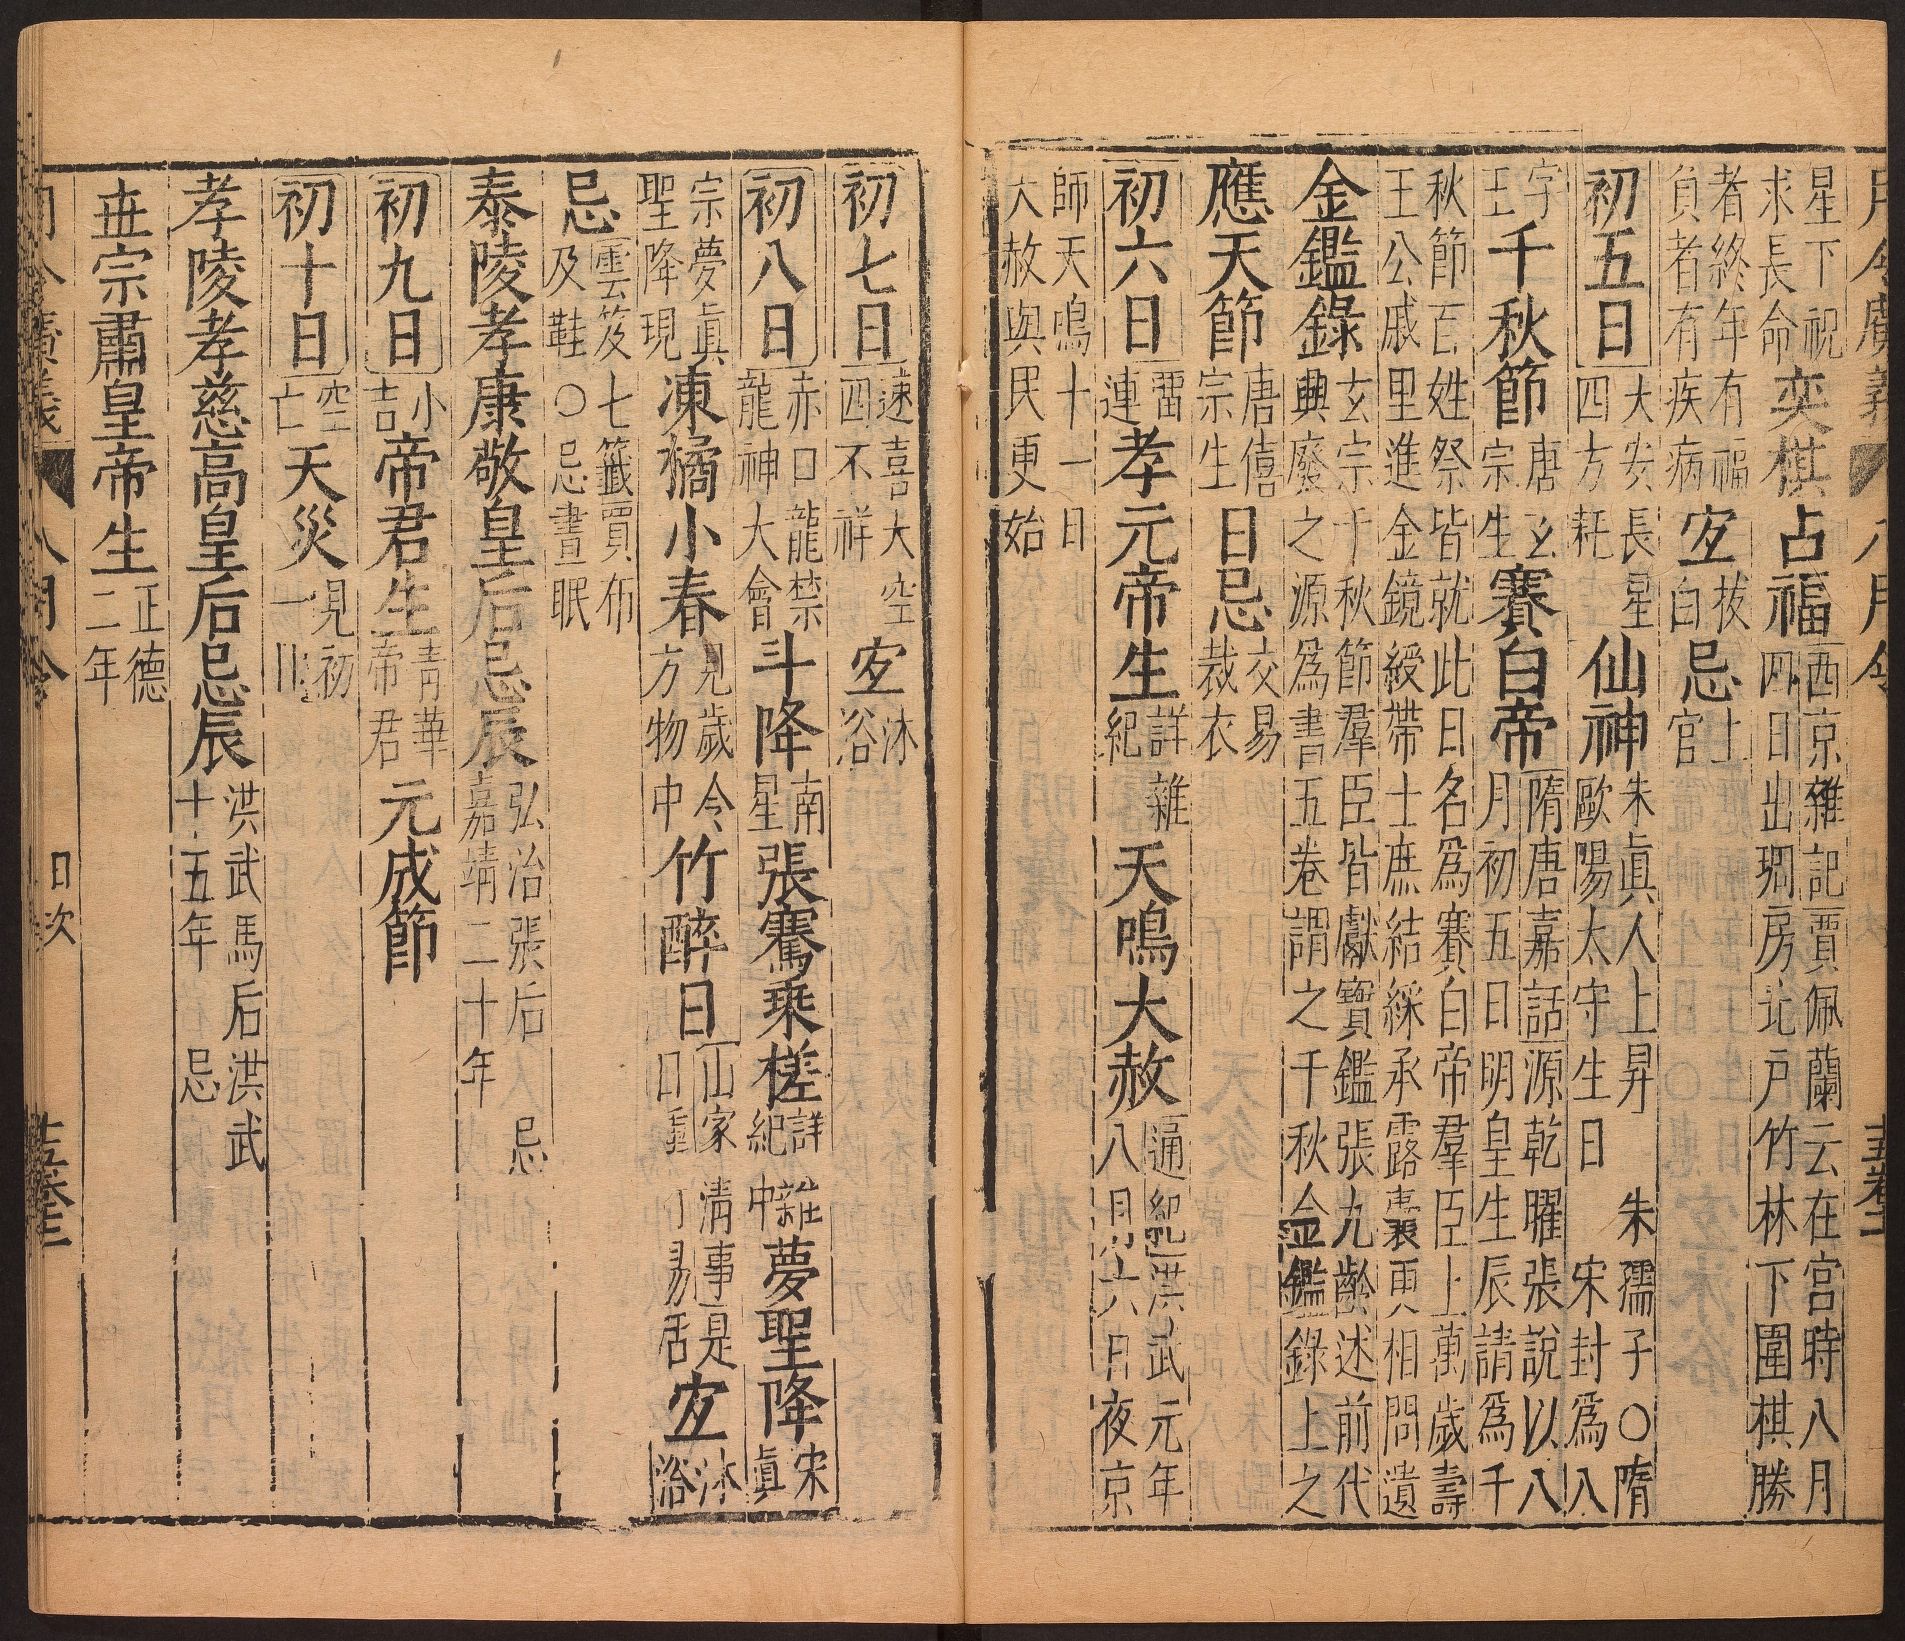 月令廣義 八月令
星下祝奕棋占福西京雜記賈佩蘭云在宮時八月
求長命四日出琱房北戶竹林下圍棋勝
者終年有福
負者有疾病宐拔白忌上官
初五日大安長星四方耗仙神朱眞人上昇 朱孺子○隋
歐陽太守生日 宋封爲八
字王千秋節唐玄宗生賽白帝隋唐嘉話源乾曜張說以八
月初五日明皇生辰請爲千
秋節百姓祭皆就此日名爲賽白帝羣臣上萬歲壽
王公戚里進金鏡綬帶士庶結綵承露囊更相問遺
金鑑錄玄宗千秋節羣臣皆獻寶鑑張九齡述前代
興廢之源爲書五卷謂之千秋金鑑錄上之
應天節唐僖宗生日忌交易裁衣
初六日畱連孝元帝生詳雜紀天鳴大赦通紀洪武元年
八月初六日夜京
師天鳴十一日
大赦與民更始
初七日速喜大空四不祥宐沐浴
初八日赤口龍禁龍神大會斗降南星張騫乗槎詳雜紀中夢聖降宋眞
宗夢眞
聖降現凍橘小春見歲令方物中竹醉日山家清事是日重日易活宐沐浴
忌雲笈七籤買布及鞋○忌晝眠
泰陵孝康敬皇后忌辰弘治張后 忌嘉靖二十年
初九日小吉帝君生青華帝君元成節
初十日空亡天災見初一日
孝陵孝慈高皇后忌辰洪武馬后洪武十五年 忌
世宗肅皇帝生正德二年
月令廣義 八月令 日次